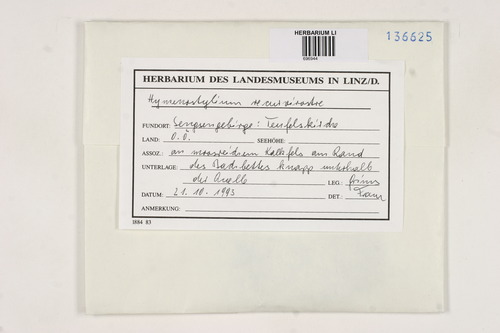 HERBARIUM LI
136625
HERBARIUM DES LANDESMUSEUMS IN LINZ/D.
Hymenostylium recurvirostre
FUNDORT: Sengsengebirge: Teufelskirche
LAND: O.Ö. SEEHÖHE:
ASSOZ.: an moosreichem Kalkfels am Rand
UNTERLAGE: des Bachbettes knapp unterhalb
der Quelle LEG.: Grims
DATUM: 21. 10. 1995 DET.: Franz
ANMERKUNG:
1884 83